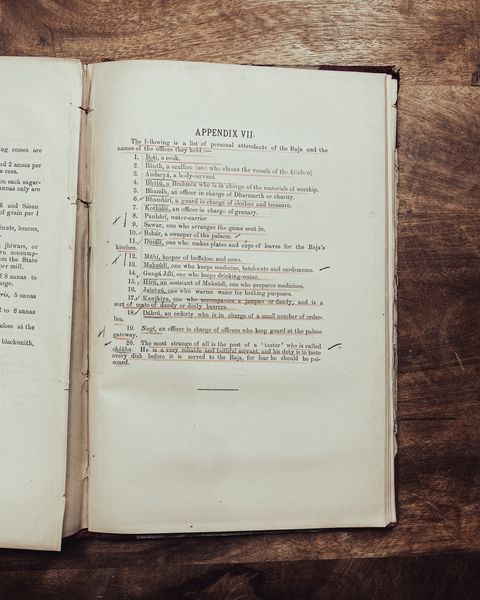 ng cesses are
nd 2 annas per
s cess.
on each sugar-
annas only are
and Sásan
of grain per 1
nuts, lemons,
jhiwars, or
wn consump-
om the State
er mill.
f 8 annas to
harge.
eris, 5 annas
to 8 annas
aloes at the
blacksmith,
APPENDIX VII.
The following is a list of personal attendants of the Raja and the
names of the offices they hold:—
1. Boti, a cook.
2. Bánth, a scullion (one who cleans the vessels of the kitchen).
3. Andaryá, a body-servant.
4. Bhátú, a Brahman who is in charge of the materials of worship.
5. Bhandú, an officer in charge of Dharmarth or charity.
6. Bhandári, a guard in charge of clothes and treasure.
7. Kotháli, an officer in charge of granary.
8. Panhári, water-carrier
9. Sawar, one who arranges the game sent in.
10. Bohár, a sweeper of the palaces.
11. one who makes plates and cups of leaves for the Raja's
kitchen.
12. Máhi, keeper of buffaloes and cows.
13. Maksúdi, one who keeps medicine, betel-nuts and cardamoms.
14. Gangá Jali, one who keeps drinking-water.
15. Hirá, an assistant of Maksúdi, one who prepares medicines.
16. one who warms water for bathing purposes.
17. Kanjkiya, one who accompanies a jampan or dandy, and is a
sort of mate of dandy or dooly bearers.
18. Dáhrá, an orderly who is in charge of a small number of order-
lies.
19. Negi, an officer in charge of officers who keep guard at the palace
gateway.
20. The most strange of all is the post of a 'taster' who is called
chákhu. He is a very reliable and faithful servant, and his duty is to taste
every dish before it is served to the Raja, for fear he should be poi-
soned.